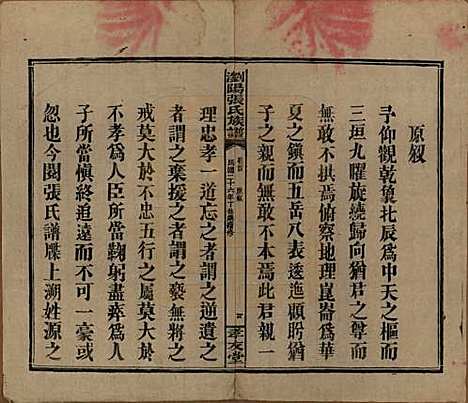 原敘
予仰觀乾象北辰爲中天之樞而
三垣九曜旋繞歸向猶君之尊而
無敢不拱焉俯察地理崑崙爲華
夏之鎭而五岳八表逶迤顧盼猶
子之親而無敢不本焉此君親一
瀏陽張氏族譜
卷首
原敘
民國三十六年丁亥續修
孝友堂
理忠孝一道忘之者謂之逆遺之
者謂之棄援之者謂之褻無將之
戒莫大於不忠五行之屬莫大於
不孝爲人臣所當鞠躬盡瘁爲人
子所當愼終追遠而不可一毫或
忽也今閱張氏譜牒上溯姓源之